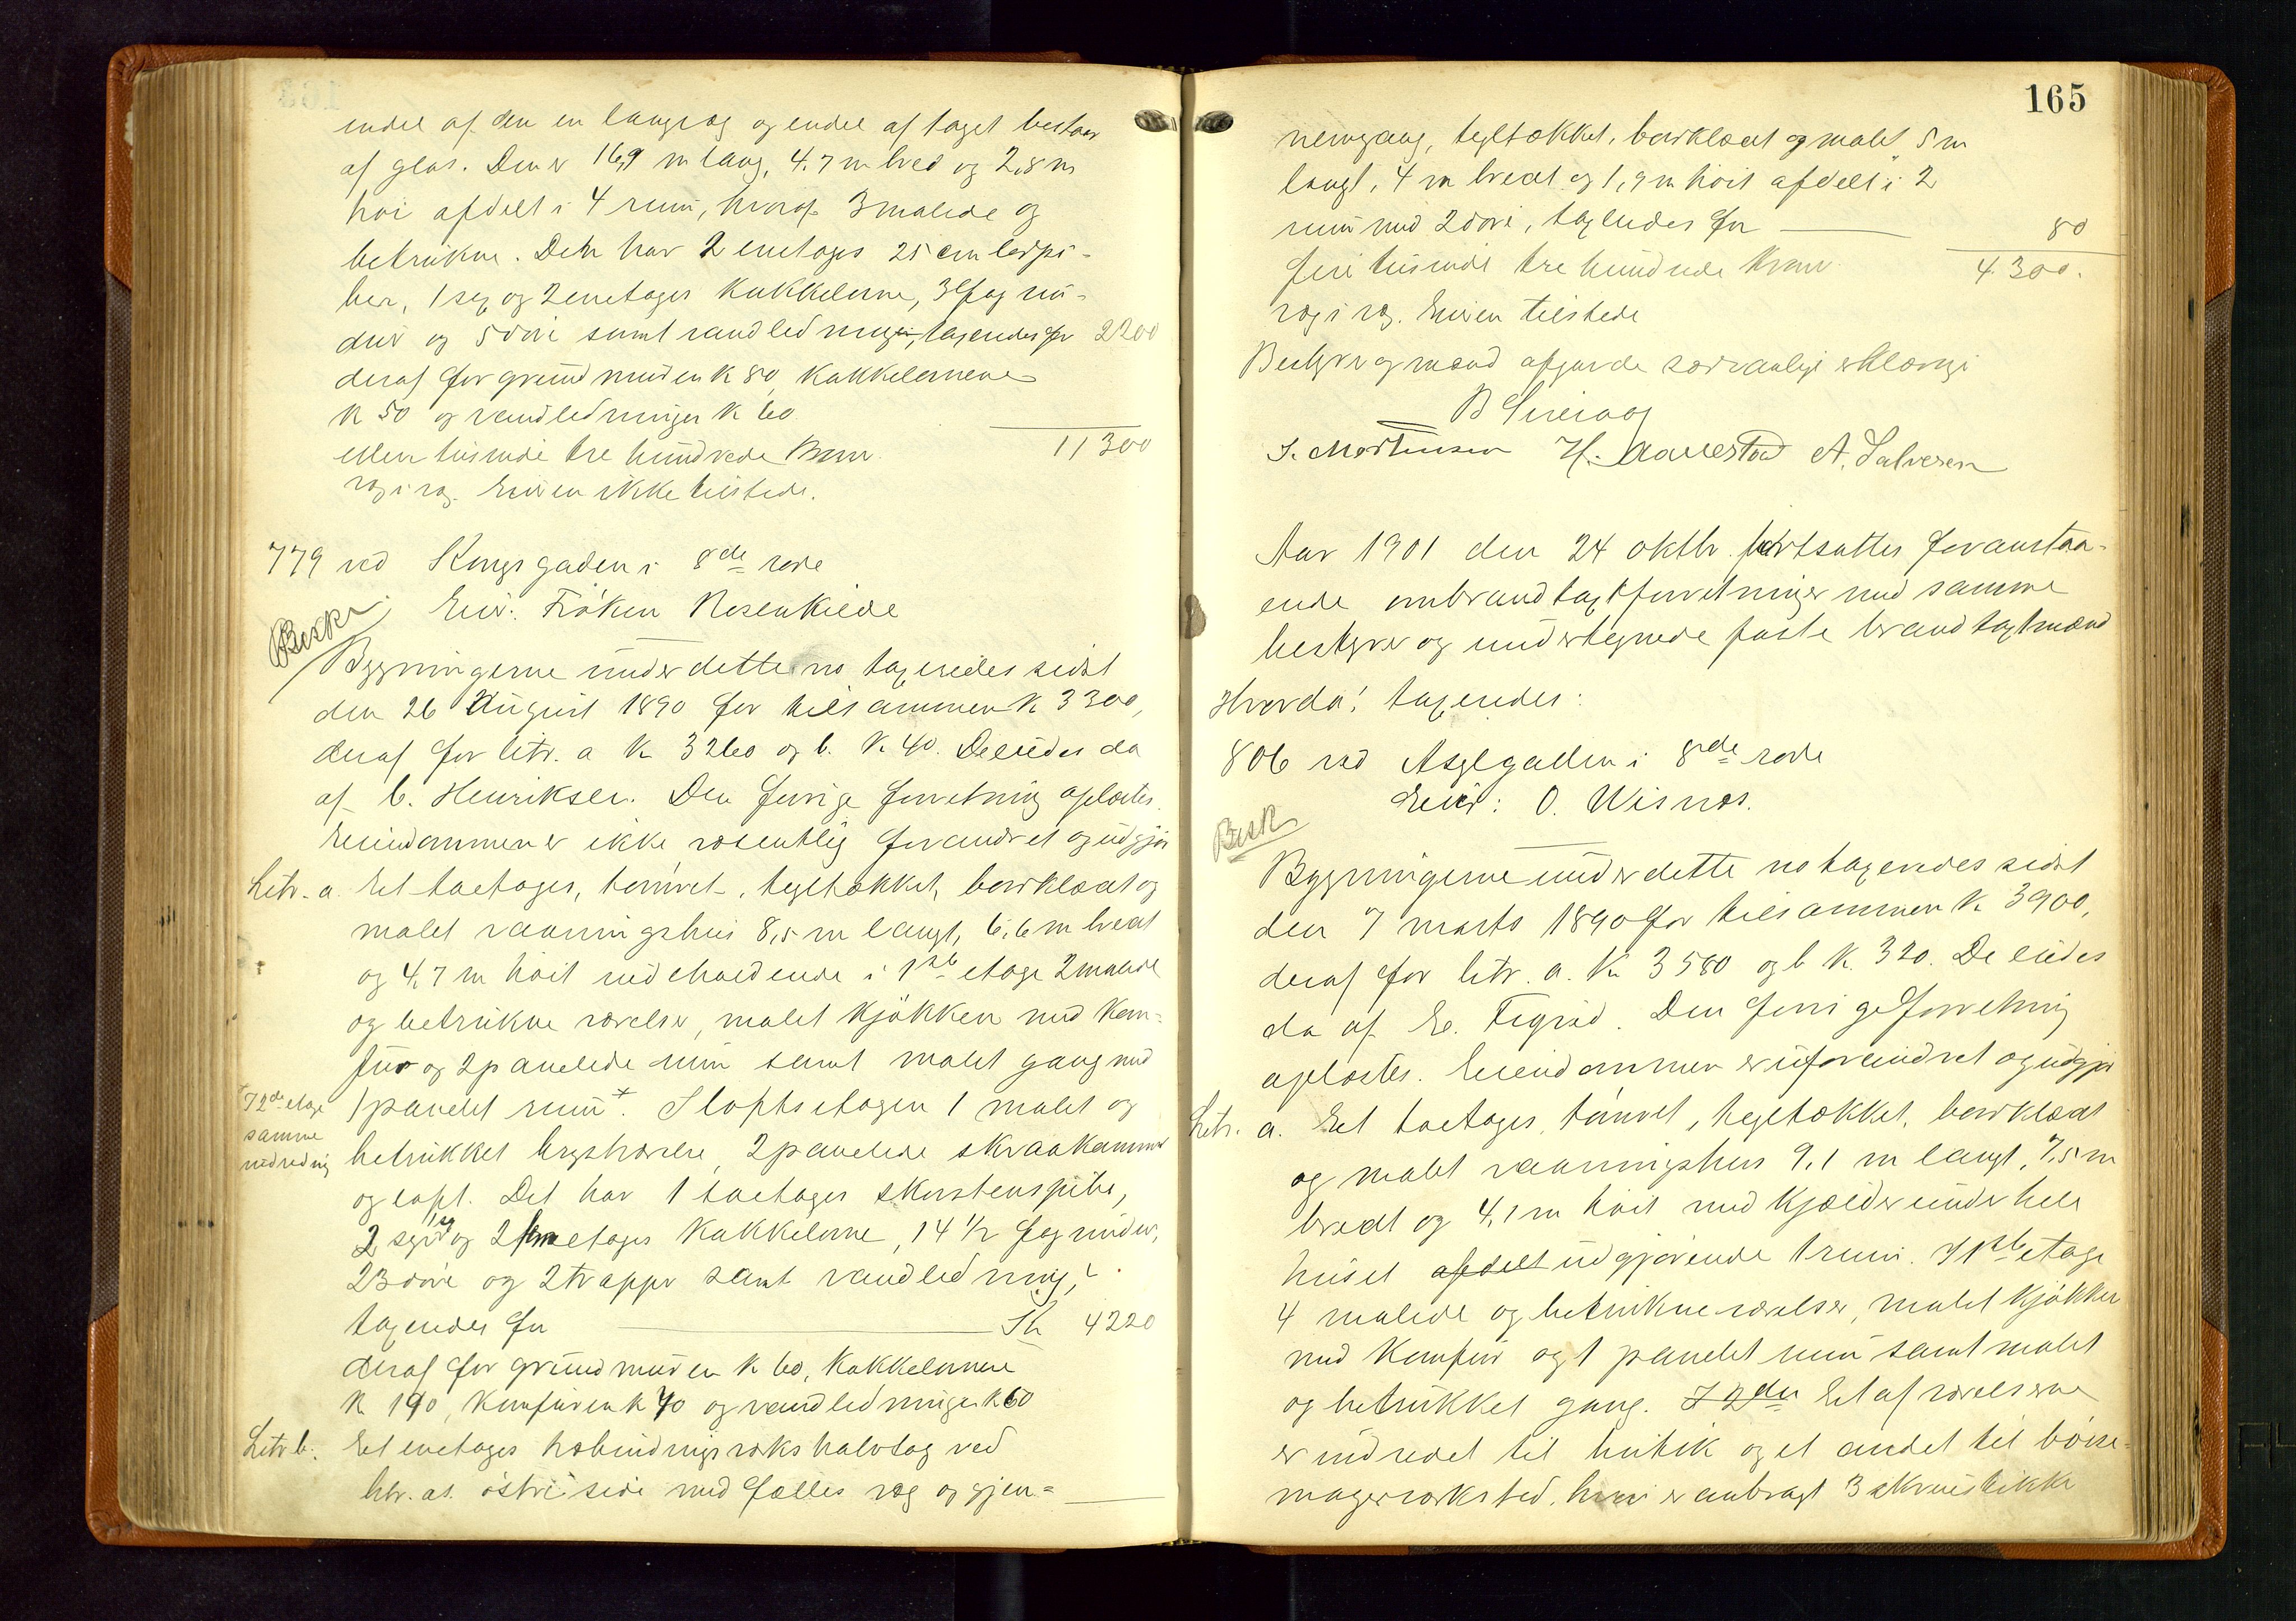 endel af den en langvæg og endel af taget bestaar
af glas. Den er 16,9 m lang, 4.7 m bred og 2,8 m
høi afdelt i 4 rum, hvoraf 3 malede og
betrukne. Den har 2 enetages 25 cm lerpi-
ber, 1 seg og 2 enetages kakkelovne, 3 fag vin-
duer og 5 døre samt vandledning, taxeredes for 2200
deraf for grundmuren K 80, kakkelovnene
K 50 og vandledningen K 60
elleve tusinde tre hundrede kroner. 11300
væg i væg. Eieren ikke tilstede.
779 ved Kongsgaden i 8de rode
Eier: Frøken Rosenkilde
Beskr.
Bygningerne under dette no taxeredes sidst
den 26 August 1890 for tilsammen K 3300,
deraf for litr. a K 3260 og b. K 40. De eiedes da
af C. Henriksen. Den forrige forretning oplæstes.
Eiendommen er ikke væsentlig forandret og udgjør
Litr. a. Et toetages, tømret, tegltækket, bordklædt og
malet vaaningshus 8,5 m langt, 6,6 m bredt
og 4,7 m høit indeholdende i 1ste etage 2 malede
og betrukne værelser, malet kjøkken med kom-
fur og 2 panelede rum samt malet gang med
1 panelet rum +. I loftsetagen 1 malet og
+ I 2de etage
samme
indredning
betrukket kvistværelse, 2 panelede skraakammer
og loft. Det har 1 toetages skorstenspibe,
2 seg og 2 etages kakkelovne, 14 1/2 fag vinduer,
23 døre og 2 trapper samt vandledning,
taxeredes for Kr 4220
deraf for grundmuren K 60, kakkelovnene
K 190, komfuren K 70 og vandledningen K 60
Litr b. Et enetages halvtag ved
litr. as østre side med fælles væg og gjen-
165
nemgang, tegltækket, bordklædt og malet 5 m
langt, 4 m bredt og 1,9 m høit afdelt i 2
rum med 2 døre, taxeredes for 80
fire tusinde tre hundrede kroner 4300.
væg i væg. Eieren tilstede
Bestyrer og mænd afgavde sædvanlige erklæring
S. Mortensen H. Aarrestad A. Salvesen
Aar 1901 den 24 oktbr. fortsattes foranstaa-
ende ombrandtaxtforretninger med samme
bestyrer og undertegnede faste brandtaxtmænd
Hvorda! taxeredes:
806 ved Asylgaden i 8de rode
Eier: O. Wisnæs.
Beskr
Bygningerne under dette no taxeredes sidst
den 7 marts 1890 for tilsammen K 3900,
deraf for litr. a. K 3580 og b K. 320. De eiedes
da af E. Tegrid. Den forrige forretning
oplæstes. Eiendommen er uforandret og udgjør
Litr. a. Et toetages, tømret, tegltækket, bordklædt
og malet vaaningshus 9,1 m langt, 7,5 m
bredt og 4,1 m høit med kjælder under hele
huset afdelt udgjørende 1 rum. I 1ste etage
4 malede og betrukne værelser, malet kjøkken
med komfur og 1 panelet rum samt malet
og betrukket gang. I 2den Et af værelserne
er indredet til butik og et andet til børse-
magerværksted, hvori er anbragt 3 skruestikke